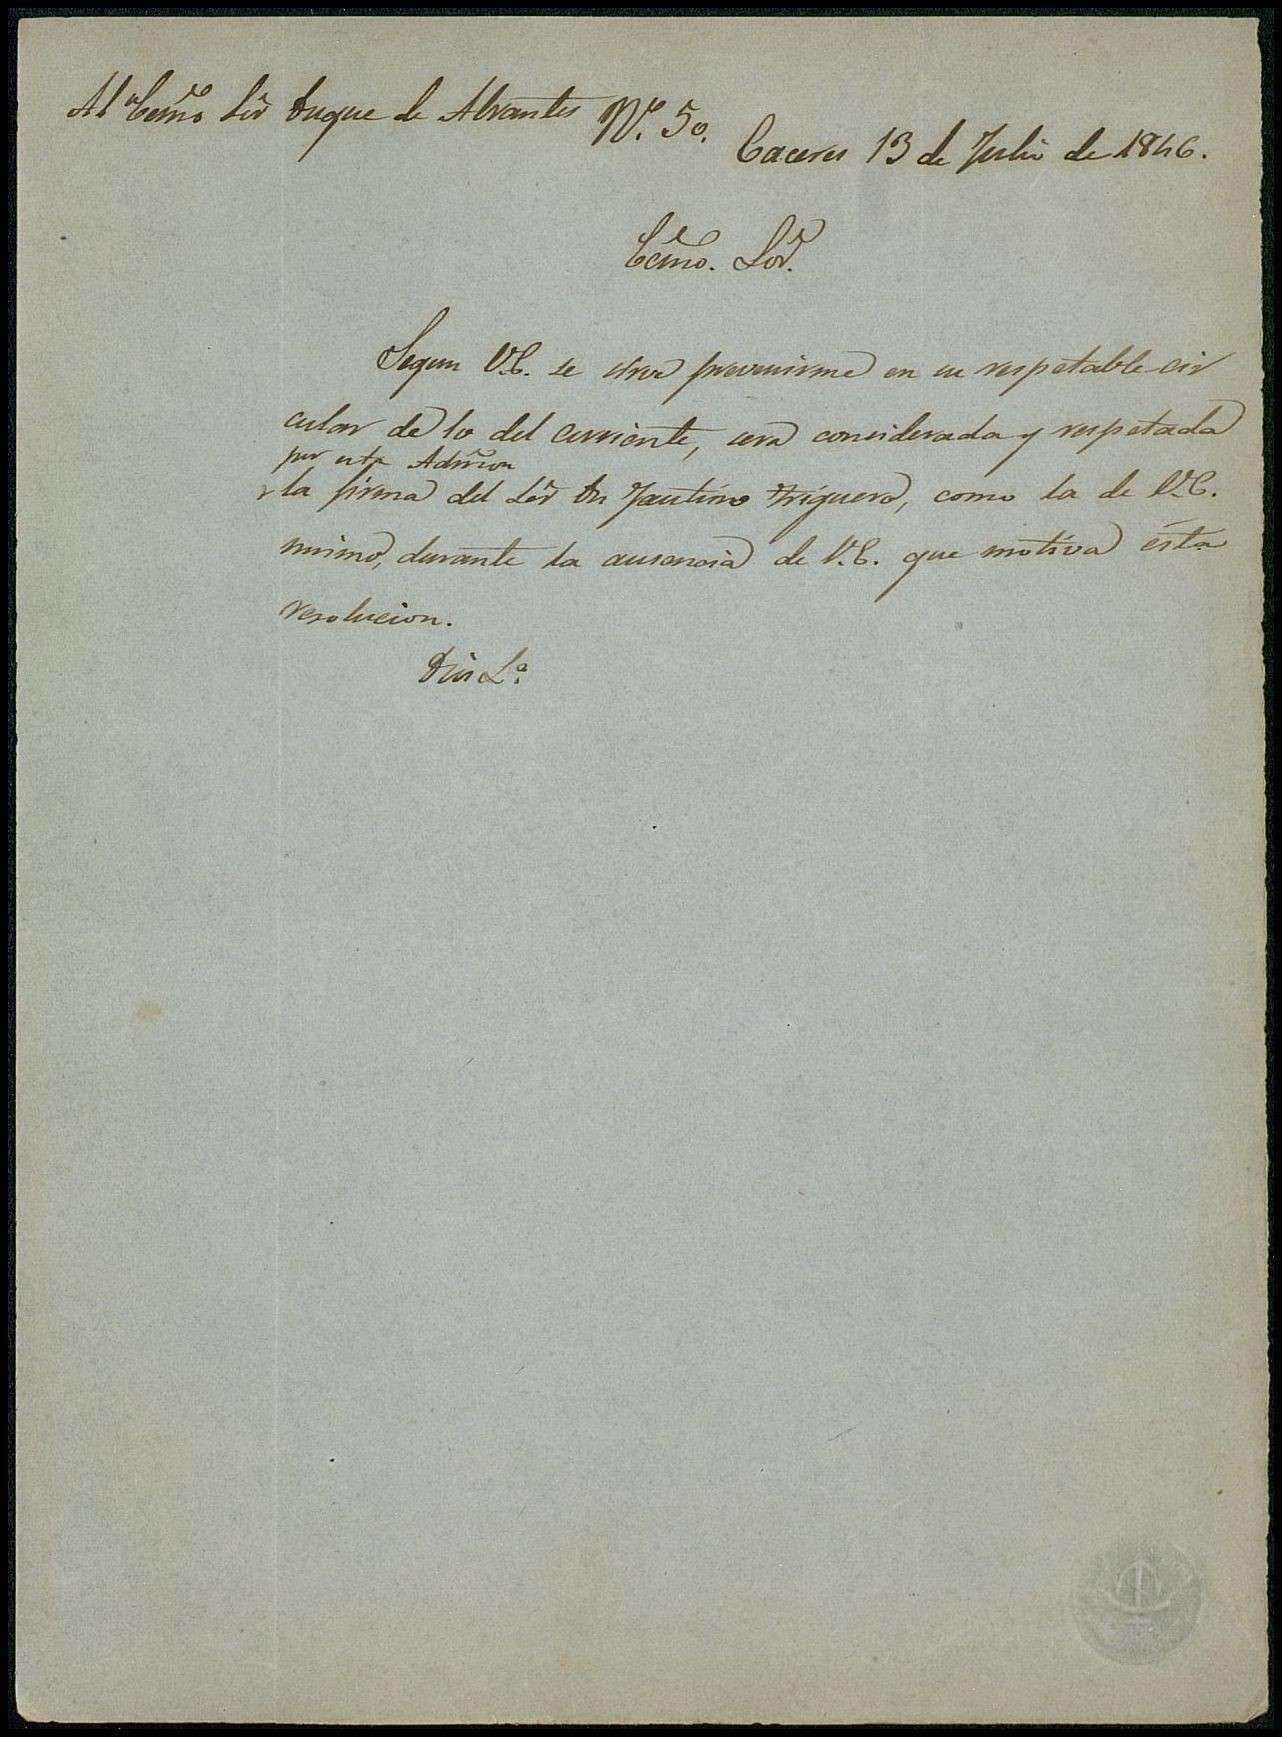 Al Ecmo Sor Duque de Abrantes Nº. 50.
Caceres 13 de Julio de 1846.
Ecmo. Sor.
Segun V.E. se sirve prevenirme en su respetable cir
cular de 10 del corriente, será considerada y respetada
por esta Admon
la firma del Sor Dn Faustino Triguero, como la de V.E.
mismo, durante la ausencia de V.E. que motiva esta
resolucion.
Dios